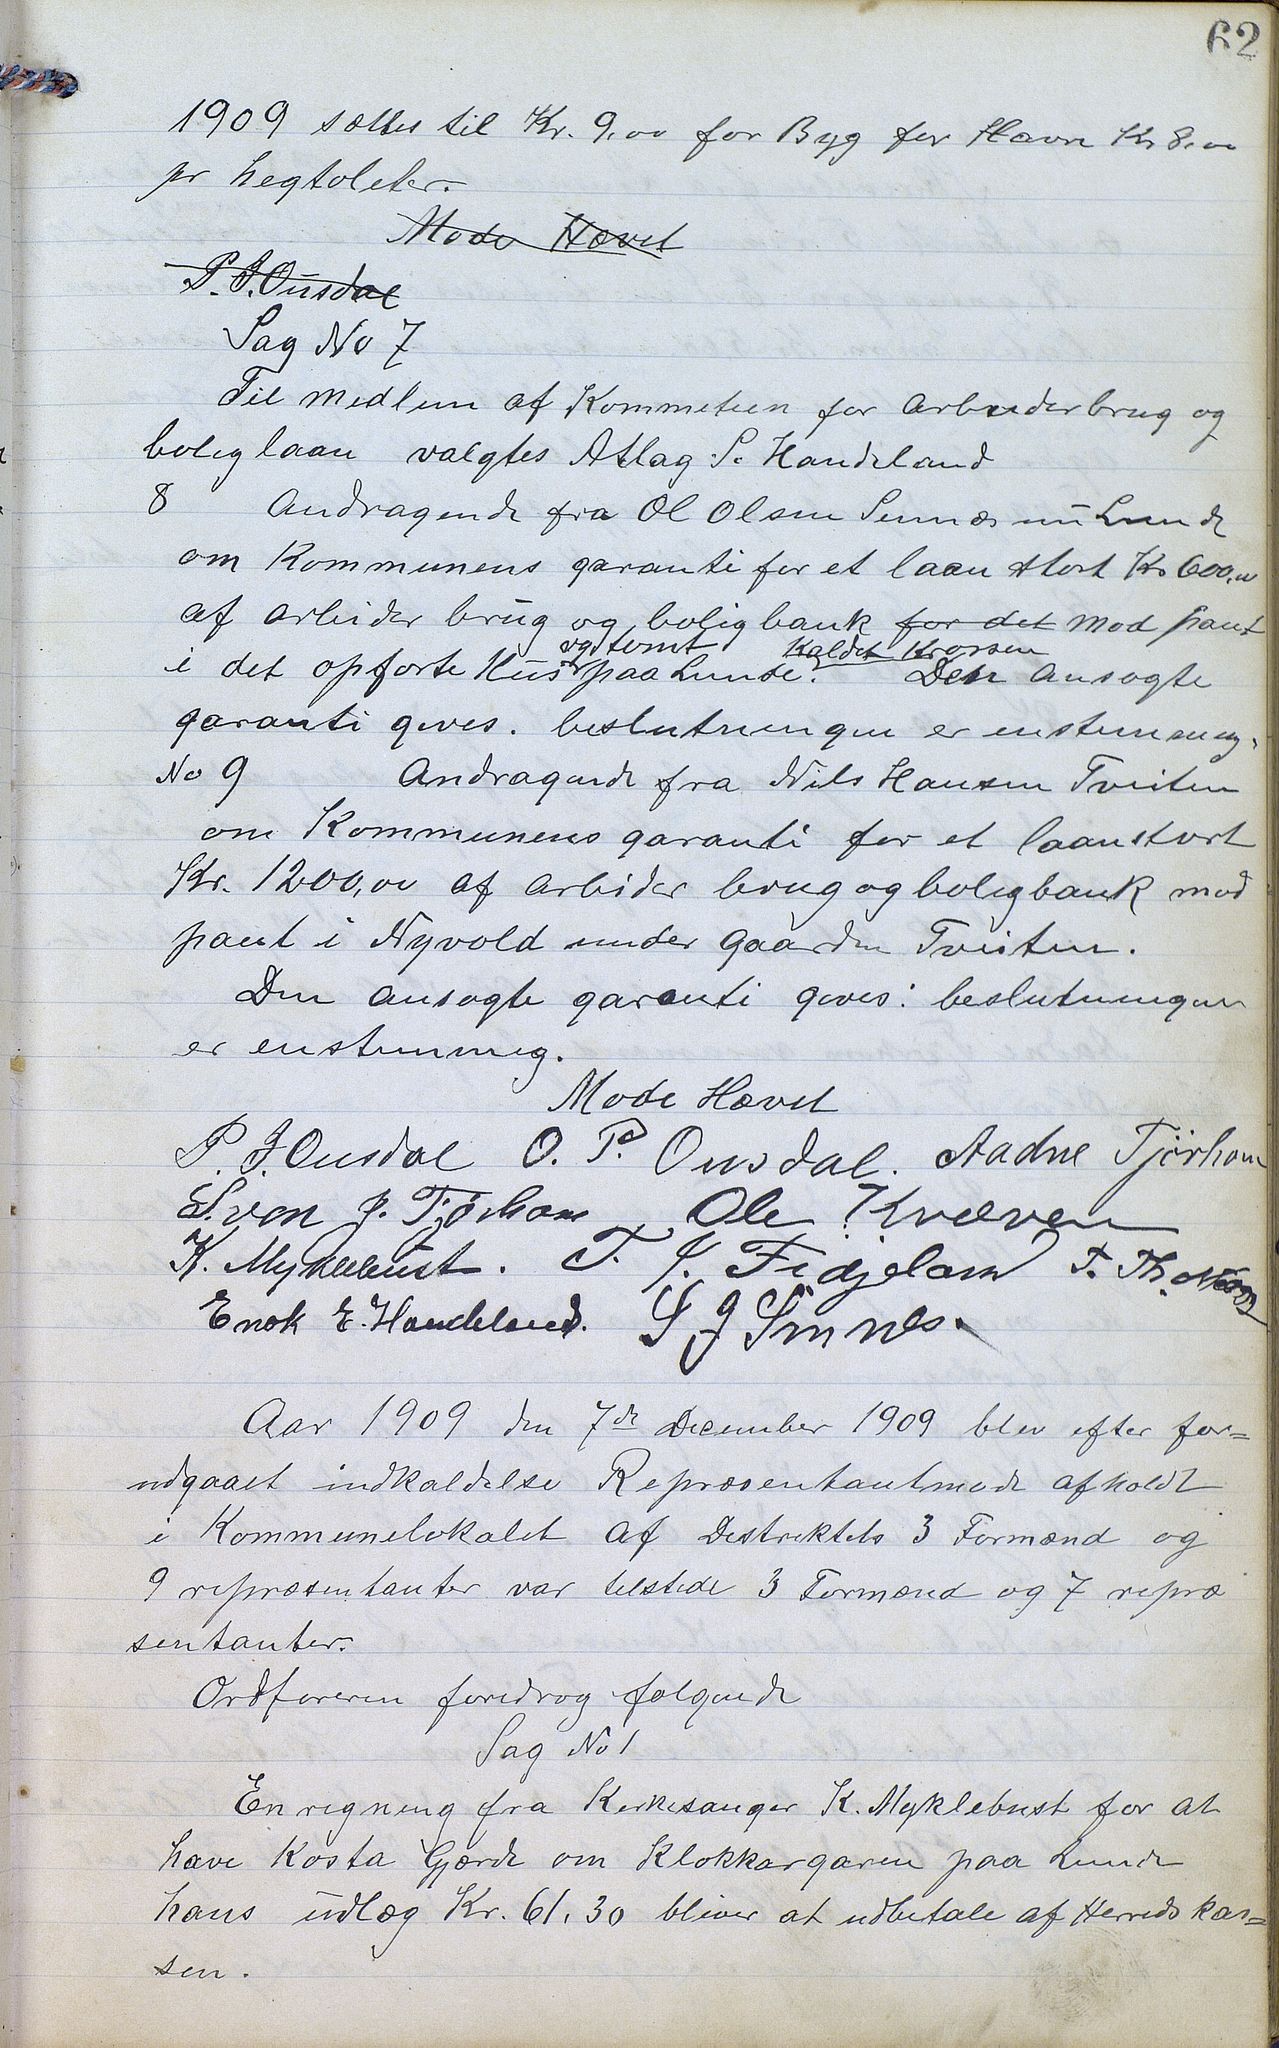 62
1909 sættes til Kr. 9,00 for Byg for Havre Kr 8,00
pr hegtoleter.
Møde Hævet
P. J. Ousdal
Sag No 7
Til medlem af Kommeteen for arbeiderbrug og
boliglaan valgtes Atlag S. Handeland
8 Andragende fra Ol Olsen Sinnes Lunde
om Kommunens garanti for et laan stort Kr 600,00
af arbeider brug og boligbank for det mod pant
og tomt kaldet Krossen
i det opførte Hus paa Lunde. Den ansøgte
garanti gives. beslutningen er enstemmig.
No 9 Andragende fra Nils Hansen Tveiten
om Kommunens garanti for et laan stort
Kr. 1200,00 af arbeider brug og boligbank mod
pant i Nyvold under Gaarden Tveiten.
Den ansøgte garanti gives: beslutningen
er enstemmig.
Møde Hævet
P. J. Ousdal O. P. Ousdal. Aadne Tjørhom
Sven J. Tjørhom Ole Kvæven
K. Myklebust. T. J. Fidjeland T. Th.
Enok E. Handeland. S J Sinnes.
Aar 1909 den 7de December 1909 blev efter for=
udgaaet indkaldelse Repræsentantmøde afholdt
i Kommunelokalet af Destriktets 3 Formænd og
9 repræsentanter var tilstede 3 Formænd og 7 repræ
sentanter.
Ordføreren foredrog følgende
Sag No 1
En regning fra Kirkesanger K. Myklebust for at
have Kosta Gjærde om Klokkargaren paa Lunde
hans udlæg Kr. 61,30 bliver at udbetale af Herredskas=
sen.